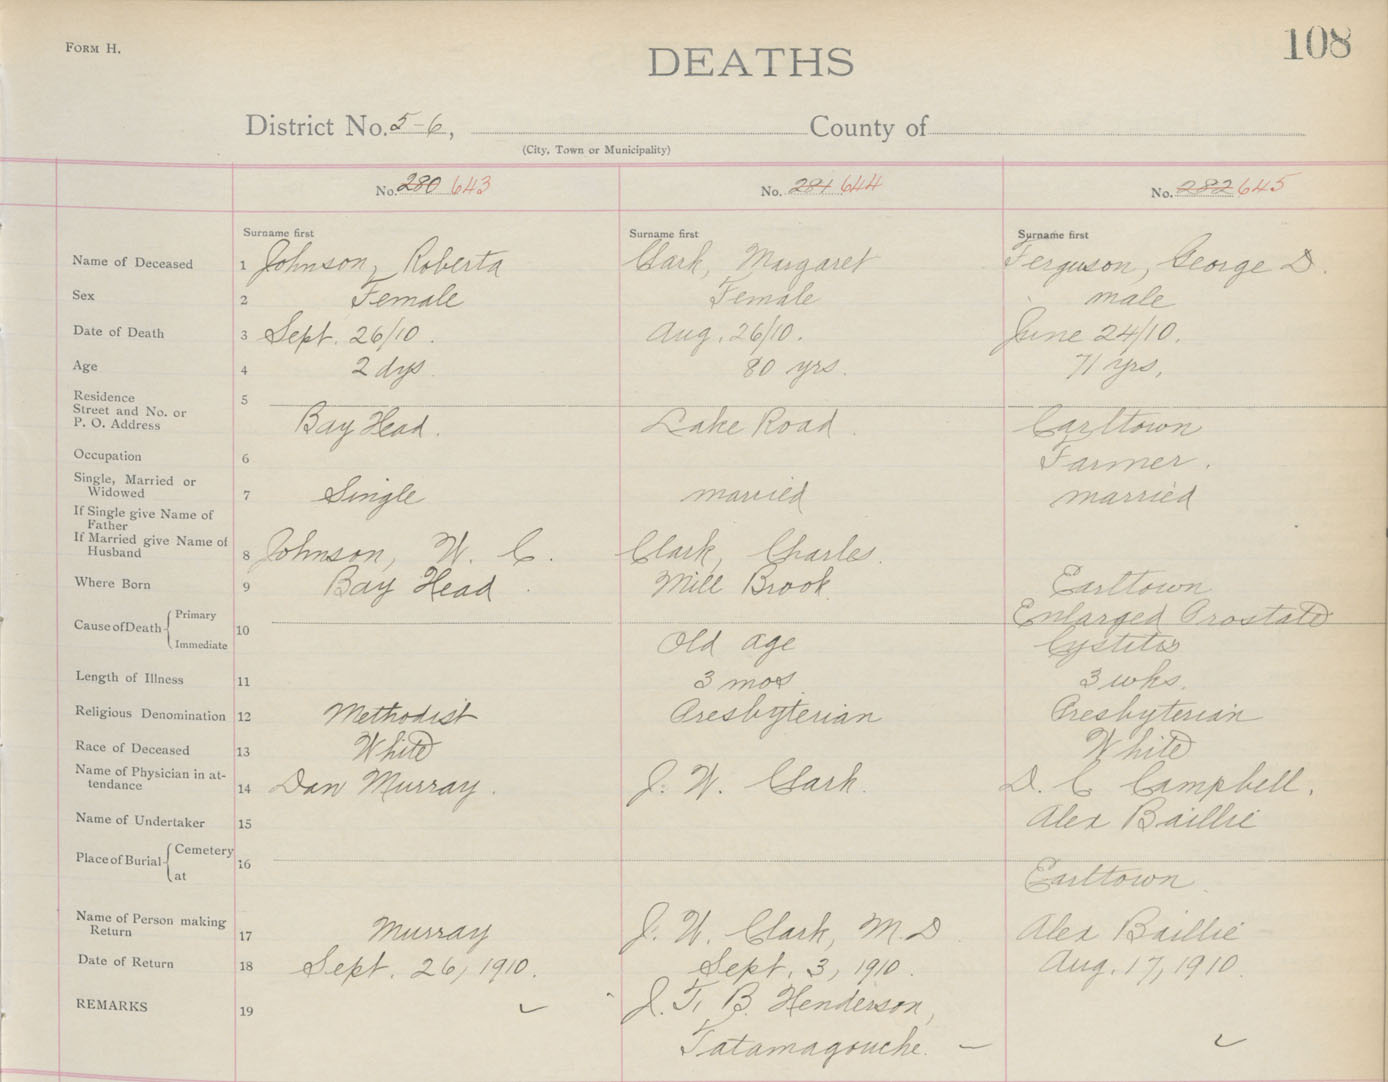 FORM H.
108
DEATHS
District No. 5-6, County of
(City, Town or Municipality)
No. 280 643 No. 281 644 No. 282 645
Surname first Surname first Surname first
Name of Deceased 1 Johnson, Roberta Clark, Margaret Ferguson, George D.
Sex 2 Female Female male
Date of Death 3 Sept. 26/10. Aug. 26/10. June 24/10.
Age 4 2 dys. 80 yrs. 71 yrs.
Residence 5
Street and No. or
P. O. Address Bay Head. Lake Road. Earltown
Occupation 6 Farmer.
Single, Married or
Widowed 7 Single married married
If Single give Name of
Father
If Married give Name of
Husband 8 Johnson, W. C. Clark, Charles.
Where Born 9 Bay Head. Mill Brook. Earltown
Cause of Death Primary 10 Enlarged Prostate
Immediate Old age Cystitis
Length of Illness 11 3 mos. 3 wks.
Religious Denomination 12 Methodist Presbyterian Presbyterian
Race of Deceased 13 White White
Name of Physician in at-
tendance 14 Dan Murray. J. W. Clark. D. C Campbell.
Name of Undertaker 15 Alex Baillie
Place of Burial Cemetery 16
at Earltown.
Name of Person making
Return 17 Murray J. W. Clark, M.D. Alex Baillie
Date of Return 18 Sept. 26, 1910. Sept. 3, 1910. Aug. 17, 1910.
REMARKS 19 J. T. B. Henderson,
Tatamagouche.